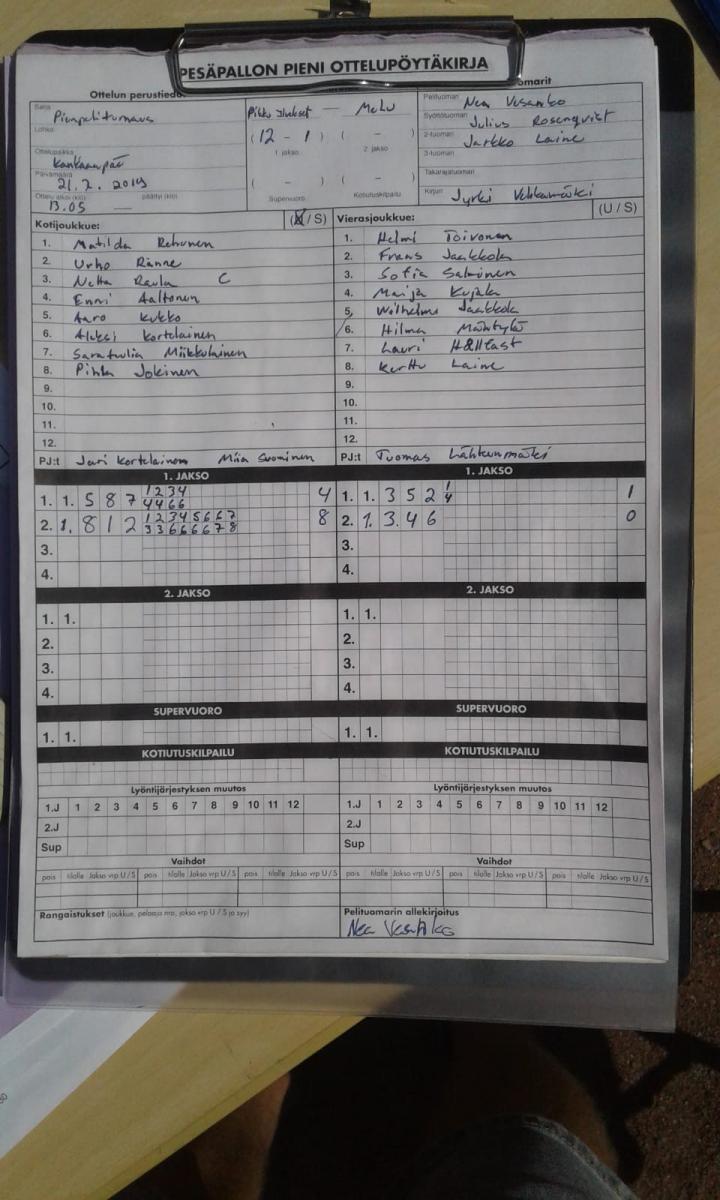 PESÄPALLON PIENI OTTELUPÖYTÄKIRJA
Ottelun perustiedo
omarit
Sarja Pienpeliturnaus
Lohko
Ottelupaikka Kankaanpää
Päivämäärä 21.7.2019
Ottelu alkoi (klo) 13.05 päättyi (klo)
Pikku Ilukset — MeLu
(12 - 1) ( - )
1 jakso 2 jakso
( - ) ( - )
Supervuoro Kotiutuskilpailu
Pelituomari Nea Vesanko
Syöttötuomari Julius Rosenqvist
2-tuomari Jarkko Laine
3-tuomari
Takarajatuomari
Kirjuri Jyrki
Kotijoukkue: (U / S)
1. Matilda Rehunen
2. Urho Ranne
3. Netta Raula C
4. Enni Aaltonen
5. Aaro Kukko
6. Aleksi Kortelainen
7. Saratuulia Miikkulainen
8. Pihla Jokinen
9.
10.
11.
12.
PJ:t Jari Kortelainen Miia Suominen
Vierasjoukkue: (U / S)
1. Helmi Toivonen
2. Frans Jaakkola
3. Sofia Salminen
4. Maija Kujala
5. Wilhelmi Jaakkola
6. Hilma Mäntylä
7. Lauri Hällfast
8. Kerttu Laine
9.
10.
11.
12.
PJ:t Tuomas Lähteenmäki
1. JAKSO
1. 1. 5 8 7 1 2 3 4 4
4 4 6 6
2. 1. 8 1 2 1 2 3 4 5 6 6 7 8
3 3 6 6 6 6 7 8
3.
4.
1. JAKSO
1. 1. 3 5 2 1 1
4
2. 1. 3. 4 6 0
3.
4.
2. JAKSO
1. 1.
2.
3.
4.
2. JAKSO
1. 1.
2.
3.
4.
SUPERVUORO
1. 1.
SUPERVUORO
1. 1.
KOTIUTUSKILPAILU
KOTIUTUSKILPAILU
Lyöntijärjestyksen muutos
1.J 1 2 3 4 5 6 7 8 9 10 11 12
2.J
Sup
Lyöntijärjestyksen muutos
1.J 1 2 3 4 5 6 7 8 9 10 11 12
2.J
Sup
Vaihdot
pois tilalle Jakso vrp U/S pois tilalle Jakso vrp U/S pois tilalle Jakso vrp U/S
Vaihdot
pois tilalle Jakso vrp U/S pois tilalle Jakso vrp U/S pois tilalle Jakso vrp U/S
Rangaistukset (joukkue, pelaaja nro, jakso vrp U / S ja syy)
Pelituomarin allekirjoitus
Nea Vesanko